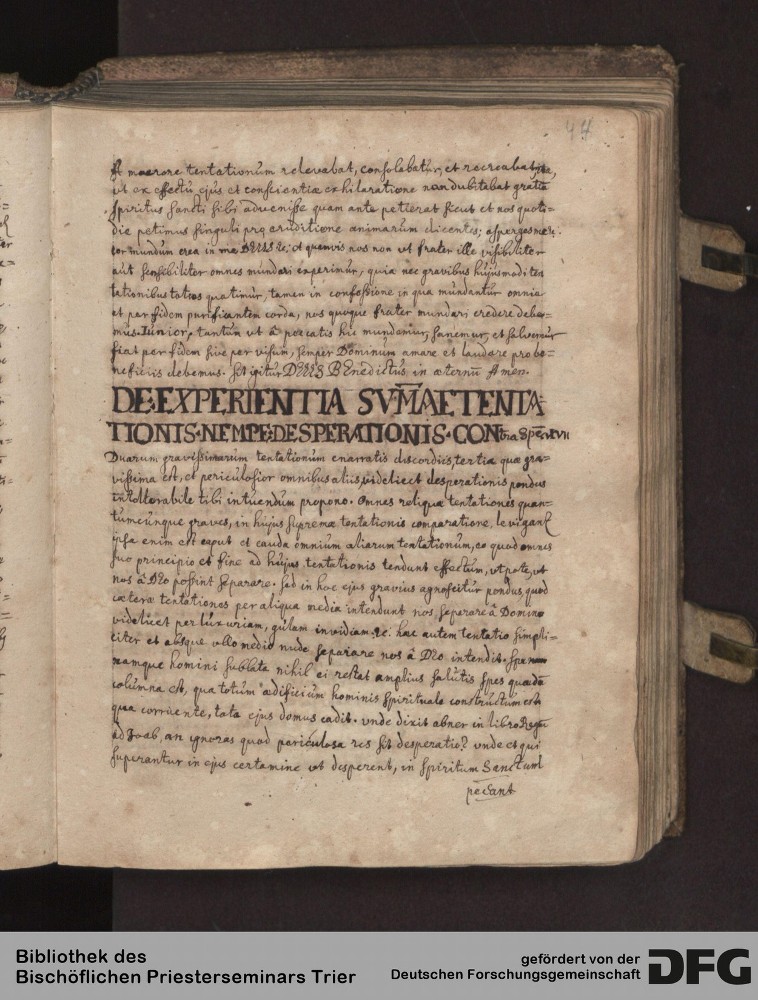 44
A maerore tentationum relevabat, consolabatur, et recreabatur,
ut ex effectu ejus et conscientiae exhilaratione non dubitabat gratia
Spiritus Sancti sibi advenisse quam ante petierat sicut et nos quoti=
die petimus singuli pro eruditione animarum dicentes; asperges me:
cor mundum crea in me DEUS &c: et quamvis nos non ut frater ille visibiliter
aut sensibiliter omnes mundari experimur, quia nec gravibus hujusmodi ten
tationibus toties quatimur, tamen in confessione in qua mundantur omnia
et per fidem purificantem corda, nos quoque frater mundari credere debe=
mus. Junior, tantum ut a peccatis hic mundemur, sanemur, et salvemur
fiat per fidem sive per visum, semper Dominum amare et laudare pro be=
neficiis debemus. Sit igitur DEUS BEnedictus in aeternu Amen.
DE: EXPERIENTTIA SVM̄AE TENTA
TIONIS· NEMPE: DESPERATIONIS· CONtra Spem XVII
Duarum gravissimarum tentationum enarratis discordiis, tertia quae gra=
vissima est, et periculosior omnibus aliis, videlicet desperationis pondus
intollerabile tibi intuendum propono. Omnes reliquae tentationes quan=
tumcunque graves, in hujus supremae tentationis comparatione, levigant
ipsa enim est caput et cauda omnium aliarum tentationum, eo quod omnes
suo principio et fine ad hujus tentationis tendunt effectum, utpote, ut
nos a DEo possint separare. Sed in hoc ejus gravius agnoscitur pondus, quod
caeterae tentationes per aliqua media intendunt nos separare a Domino
videlicet per luxuriam, gulam invidiam &c: haec autem tentatio simpli=
citer et absque ullo medio nude separare nos a DEo intendit. Spe
namque homini sublata nihil ei restat amplius salutis spes quaedā
columna est, qua totum aedificium hominis spirituale constructum est
qua corruente, tota ejus domus cadit. unde dixit abner in libro Regū
ad Joab, an ignoras quod periculosa res sit desperatio? unde et qui
superantur in ejus certamine ut desperent, in Spiritum Sanctum
peccant
Bibliothek des
Bischöflichen Priesterseminars Trier
gefördert von der
Deutschen Forschungsgemeinschaft
DFG